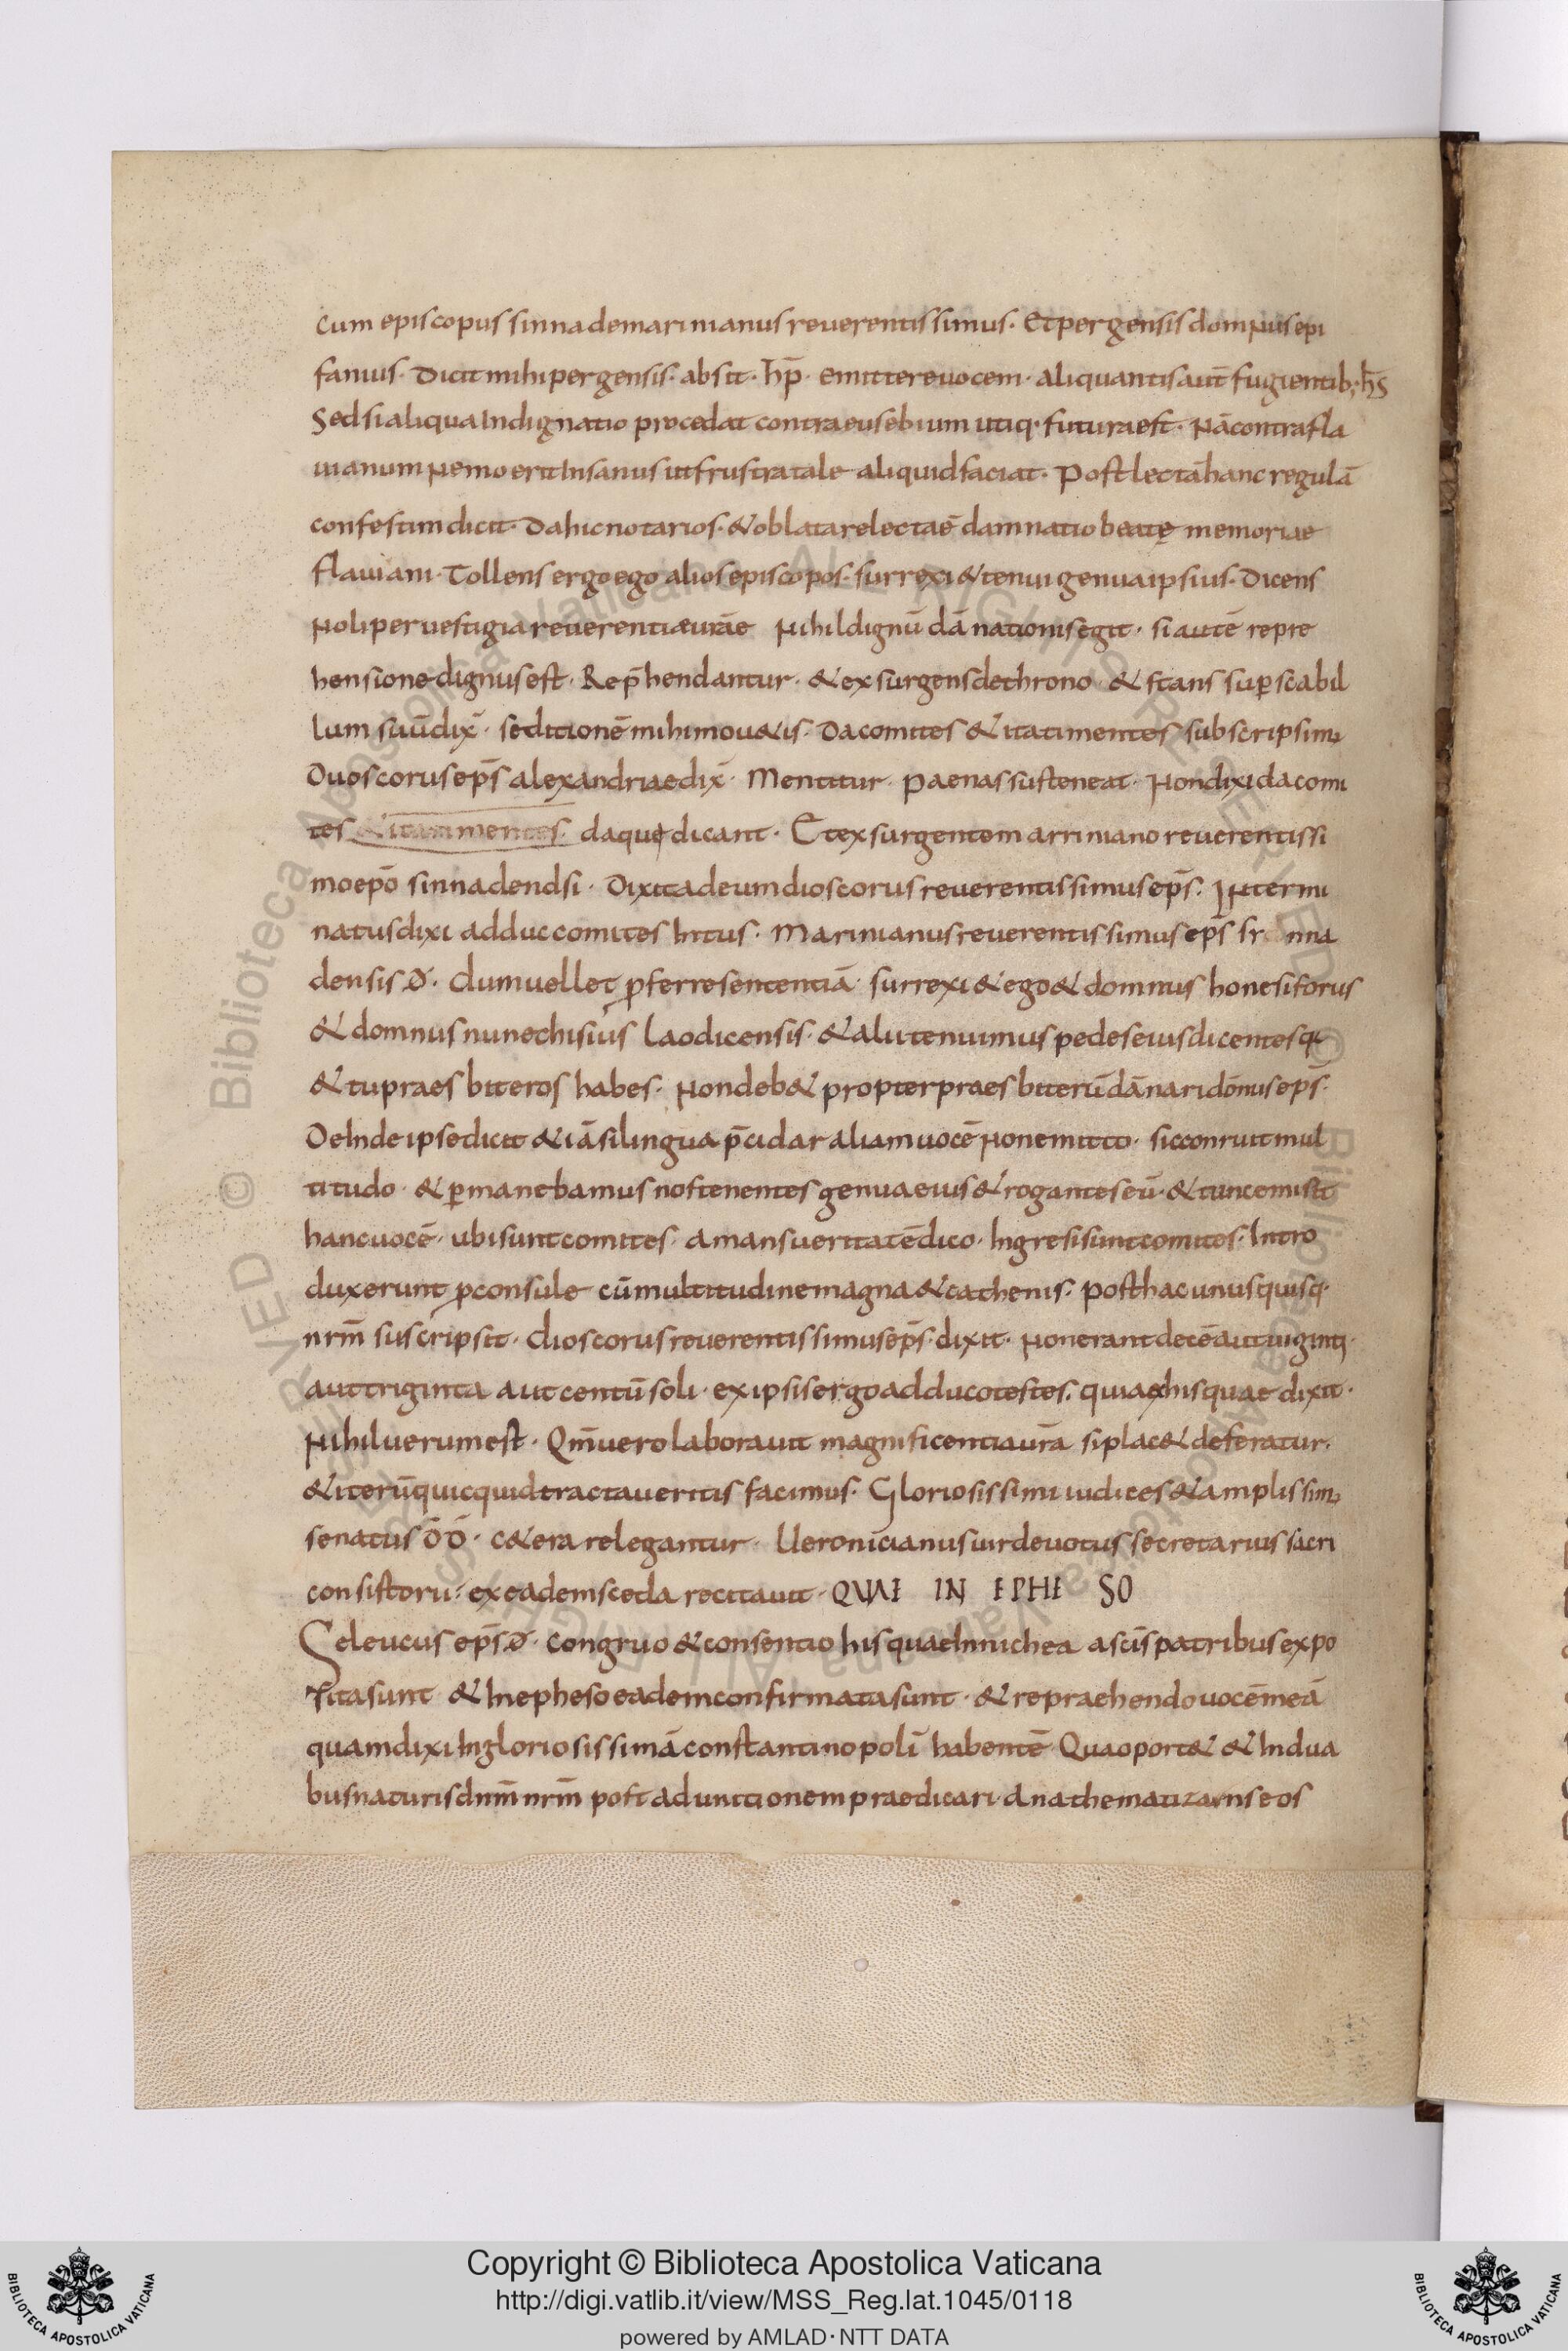 cum episcopus sinnade marinianus reuerentissimus · Et pergensis domnus epi
fanius · Dicit mihi pergensis · absit · hp̄ · emittere uocem · aliquantis aut̄ fugientib; · h̄s
Sed si aliqua Indignatio procedat contra eusebium utiq· futura est · Nā contra fla
uianum Nemo erit Insanus ut frustra tale aliquid faciat · Post lectā hanc regulā
confestim dicit · Da hic notarios · & oblata relecta ē damnatio beatę memoriae
flauiani · Tollens ergo ego alios episcopos · surrexi & tenui genua ipsius · Dicens
Noli per uestigia reuerentiae urāe Nihil dignū dānationis egit · si autē repre
hensione dignus est · Rep̄hendantur · & exsurgens de throno · & stans sup scabil
lum suū dix̄ · seditionē mihi mou&is · Da comites & ita timentes subscripsim;
Duoscorus ep̄s alexandriae dix̄ · Mentitur · Paenas susteneat · Non dixi da comi
tes & ita timentes · da quę dicant · Et exsurgentem arriniano reuerentissi
mo ep̄o sinnadendsi · Dixit ad eum dioscorus reuerentissimus ep̄s · INtermi
natus dixi adduc comites Intus · Marinianus reuerentissimus ep̄s sr nna
densis đ · dum uellet pferre sententiā · surrexi & ego & domnus honesiforus
& domnus nunechisius laodicensis · & alii tenuimus pedes eius dicentes q;
& tu praesbiteros habes · Non deb& propter praesbiterū dānari dōnus ep̄s ·
DeInde ipse dicit & iā si lingua p̄cidar aliam uocē Non emitto · sic conruit mul
titudo · & pmanebamus nos tenentes genua eius & rogantes eū · & tunc emisit
hanc uocē · ubi sunt comites · amans ueritatē dico · Ingresi sunt comites · Intro
duxerunt pconsule cū multitudine magna & cathenis · post hac unusquisq·
nrm̄ suscripsit · dioscorus reuerentissimus ep̄s · dixit · Non erant decē aut uiginti ·
aut triginta aut centū soli · ex ipsis ergo adduco testes · quia ex his quae dixit ·
Nihil uerum est · Qm̄ uero laborauit magnificentia ur̄a si plac& deferatur ·
& iterū quicquid tractaueritis facimus · Gloriosissimi iudices & amplissim;
senatus D̄D̄ · c&era relegantur · Ueronicianus uir deuotus secretarius sacri
consistorii · ex eadem sceda recitauit · QUAE IN EPHE SO
Seleucus ep̄s đ · congruo & consentio his quae In nichea a sc̄is patribus expo
sita sunt & In epheso eadem confirmata sunt · & repraehendo uocē meā
quam dixi In gloriosissimā constantinopolī habentē Qua oport& & In dua
bus naturis dnm̄ nrm̄ post adunctionem praedicari · Anathematizans eos
Copyright © Biblioteca Apostolica Vaticana
http://digi.vatlib.it/view/MSS_Reg.lat.1045/0118
powered by AMLAD·NTT DATA